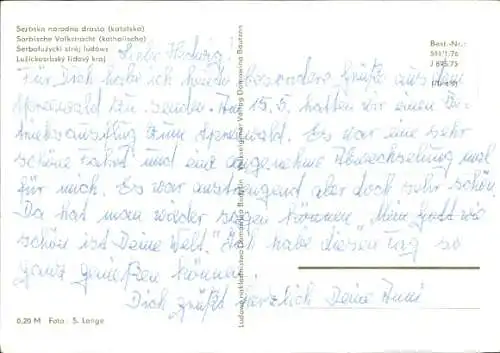 Serbska narodna drasta (katolska)
Sorbische Volkstracht (katholische)
Serbołużycki strój ludowy
Lužickosrbský lidový kroj
Best.-Nr.:
511/1/76
Liebe Hedwig!
Für Dich habe ich heute besondere Grüße aus dem
Spreewald zu senden. Am 15.5. hatten wir einen Be-
triebsausflug zum Spreewald. Es war eine sehr
schöne Fahrt und eine angenehme Abwechselung mal
für mich. Es war anstrengend aber doch sehr schön.
Da hat man wieder sagen können "Mein Gott wie
schön ist Deine Welt". Ich habe diesen Tag so
ganz genießen können.
Dich grüßt herzlich Deine Anni
Ludowe nakładnistwo Domowina Budyšin · Volkseigener Verlag Domowina Bautzen
0,20 M Foto: S. Lange